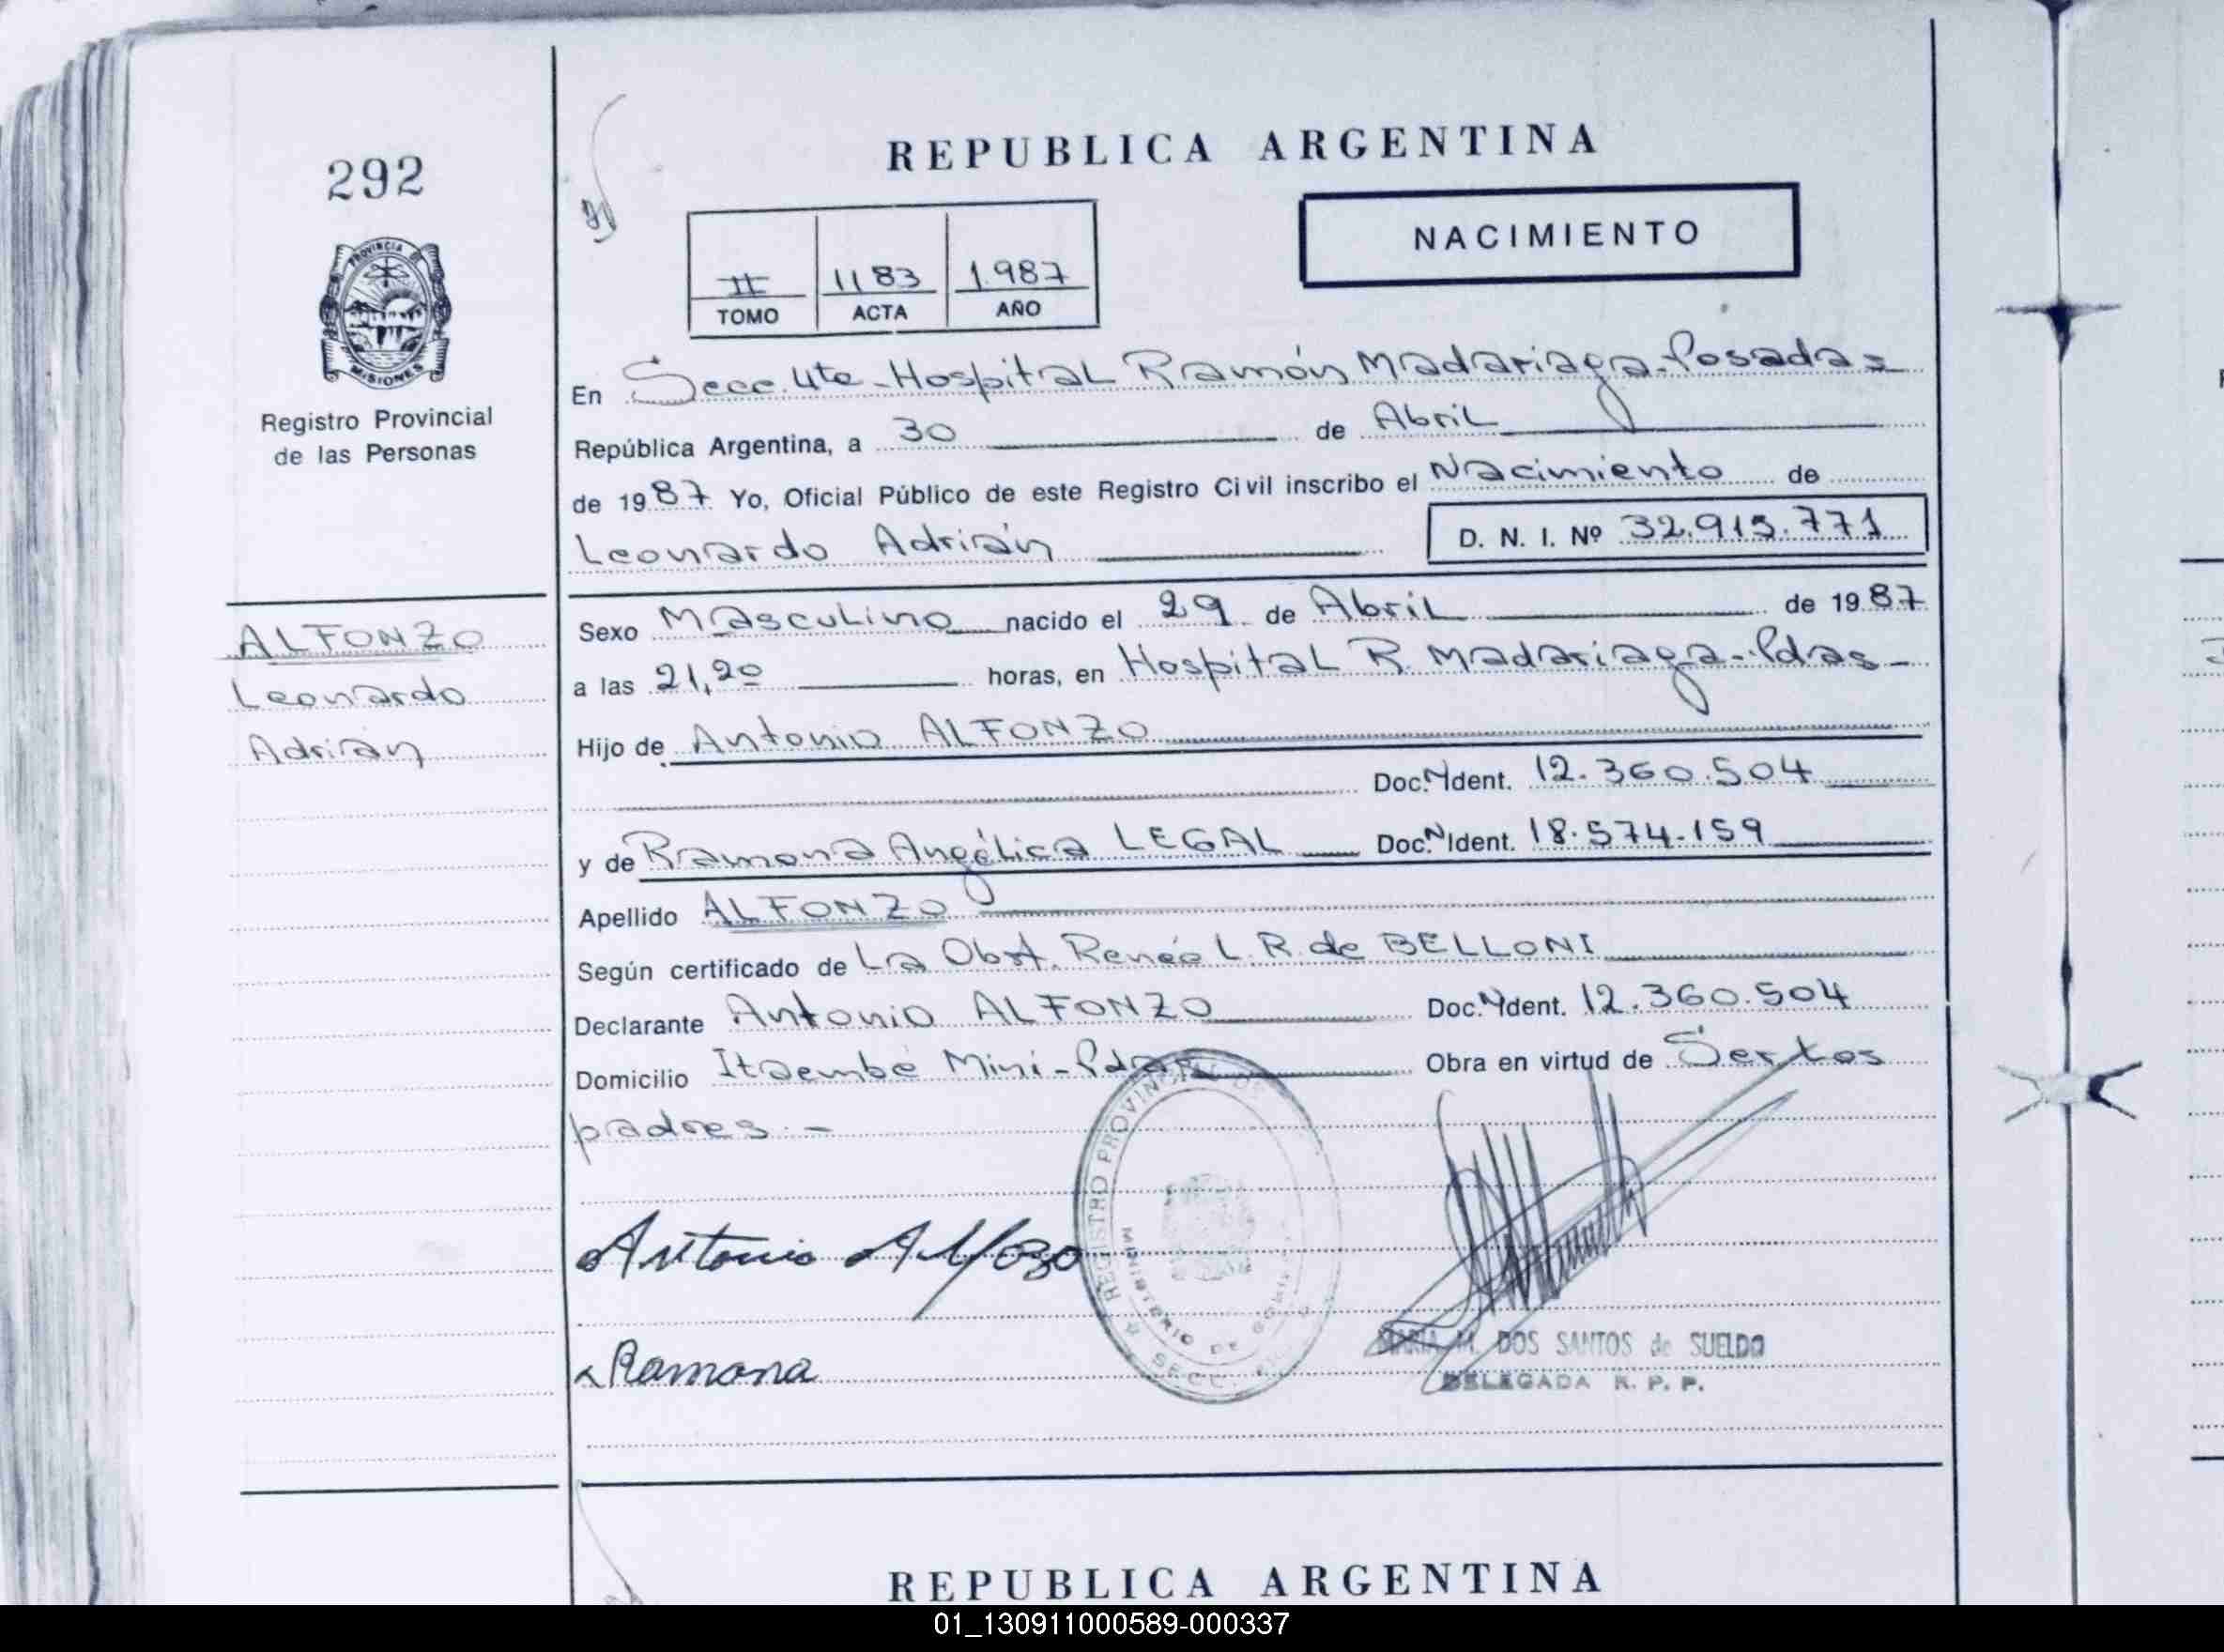 292
PROVINCIA
MISIONES
Registro Provincial
de las Personas
ALFONZO
Leonardo
Adrián
REPUBLICA ARGENTINA
NACIMIENTO
II 1183 1.987
TOMO ACTA AÑO
En Secc. 4ta - Hospital Ramón Madariaga - Posadas
República Argentina, a 30 de Abril
de 1987 Yo, Oficial Público de este Registro Civil inscribo el Nacimiento de
Leonardo Adrián D. N. I. Nº 32.915.771
Sexo Masculino nacido el 29 de Abril de 1987
a las 21,20 horas, en Hospital R. Madariaga - Pdas -
Hijo de Antonio ALFONZO
Doc. N Ident. 12.360.504
y de Ramona Angélica LEGAL Doc. N Ident. 18.574.159
Apellido ALFONZO
Según certificado de La Obst. Renée L. R. de BELLONI
Declarante Antonio ALFONZO Doc. N Ident. 12.360.504
Domicilio Itaembé Miní - Pdas Obra en virtud de Ser los
padres. -
REGISTRO PROVINCIAL DE
MINISTERIO DE GOBI
SECC.
Antonio Alfozo
Ramona
MARIA M. DOS SANTOS de SUELDO
DELEGADA R. P. P.
REPUBLICA ARGENTINA
01_130911000589-000337